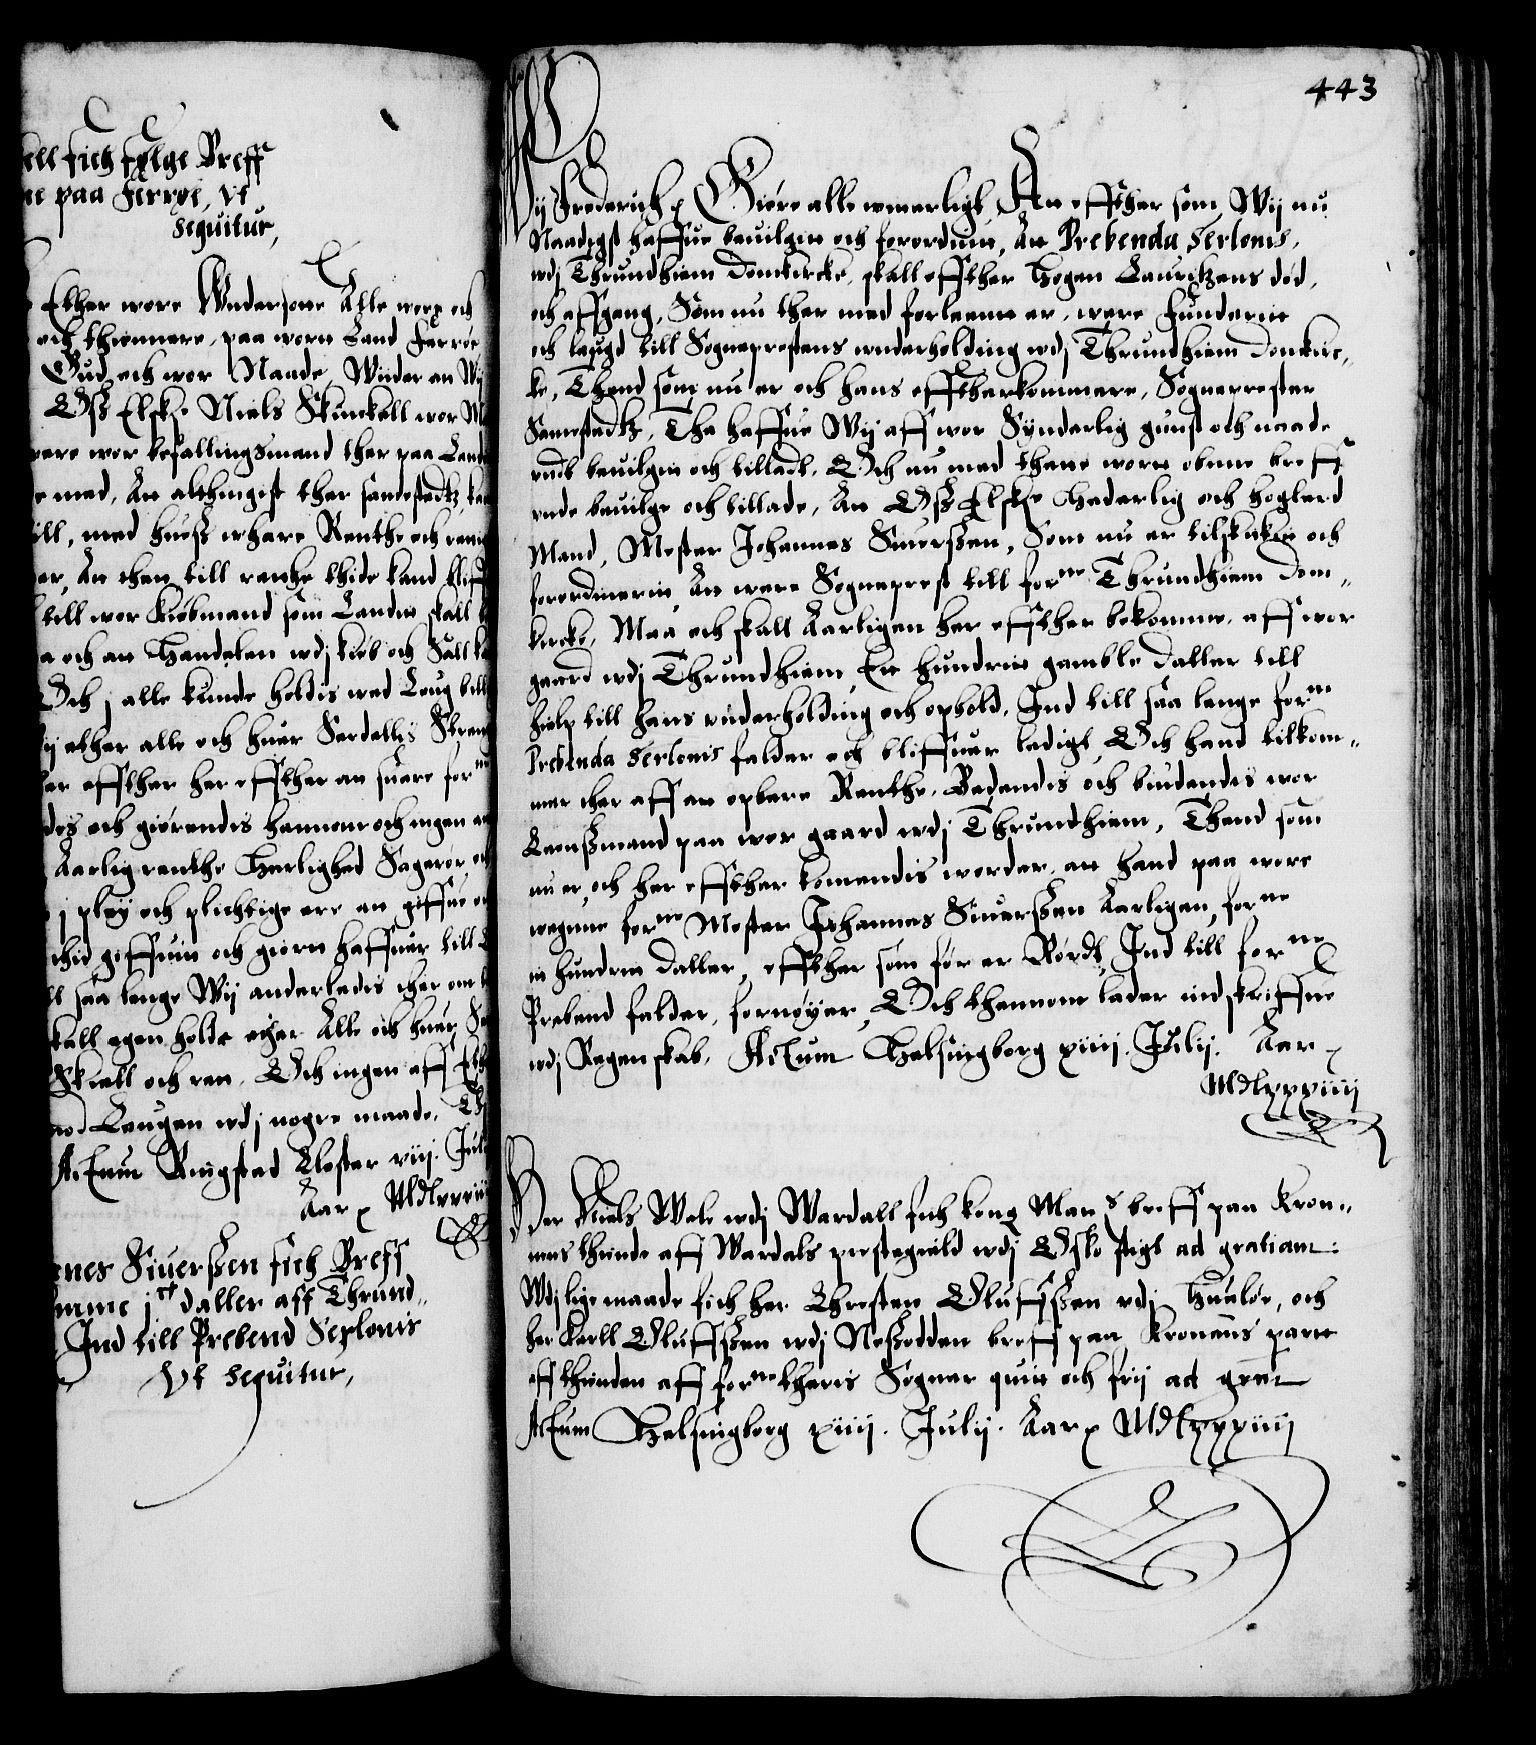 ell fich følge Breff
ne paa Ferrøe, Vt
sequitur,
Ether wore Vndersone Alle wore och
och thiennere, paa wortt Land Ferrøe
Gud och wor Naade, Wiider an Wij
Oss Elske Niels Skinckell wor
were wor befallingsmand ther paa Land
e med, An althingist ther samestedtz,
ill, med huess whare Renthe och
er, An then till renthe thide kand
till wor Kiøbmand som Landit skall
a och an Handelen wdj kiøb och Sall
Och j alle kunde holdis wed Loug
ij ether alle och huer Serdelis Streng
er effther her effther an suare for^ne
des och giørendis hannom och ingen
Aarlig renthe Herlighed Sagerør,
j pleij och plichtige ere an giffue
thid giffuitt och giort haffuer till
ll saa lenge Wij anderledis ther om
skall egen holde ether Alle och huer
Skiell och ret. Och ingen aff
wed Lougen wdj nogre maade.
Actum Ringsted Closter viij. Jul
Aar x Mdlxxxiiij
nnes Siuerssen fich Breff
mme j^c daller aff Thrund,,
Ind till Prebend Sertonis
Vt sequitur,
443
Wij Frederich x Giøre alle witterligt, At effther som Wij nu
Naadigst haffue beuilgitt och forordnitt, An Prebenda Sertonis,
wdj Thrundhiem Domkircke, skall effther Hogen Lauritzens død,
och affgang, Som nu ther med forleentt er, were Funderitt
och laugd till Sogneprestens wnderholding wdj Thrundhiem Domkirc,,
ke, Thend som nu er och hans efftherkommere, Sogneprester
Samestedtz, Tha haffue Wij aff wor Synderlig gunst och naade
vndt beuilgitt och tilladt, Och nu med thette wortt obne breff
vnde beuilge och tillade, An Oss Elske Hederlig och Høglerd
Mand, Mester Johannes Siuerssen, Som nu er tilskicket och
forordinerit, An were Sogneprest till for^ne Thrundhiem Dom,,
kircke, Maa och skall Aarligen her effther bekomme, aff wor
gaard wdj Thrundhiem, Ett hundritt gamble Daller till
hielp till hans vnderholding och ophold, Ind till saa lenge for^ne
Prebenda Sertonis falder och bliffuer ledigt, Och hand tilkom,,
mer ther aff an opbere Renthe, Bedendis och biudendis wor
Leenssmand paa wor gaard wdj Thrundhiem, Thend som
nu er, och her effther komendis worder, an hand paa wore
wegnne for^ne Mester Johannes Siuerssen Aarligen, for^ne
itt hundritt Daller, effther som før er Rørdt, Ind till for^ne
Prebend falder, fornøyer, Och thennom lader indskriffue
wdj Regenskab. Actum Helsingborg xiiij. Julij. Aar x
Mdlxxxiiij
Her Niels Wele wdj Wardall fich kong Mau^s breff paa Kron,,
nens thiende aff Wardals prestegield wdj Oslo stigt ad gratiam:
Wdj lige maade fich her Chresten Oluffssen wdj Hualør, och
her Karll Oluffssen wdj Nessodden breff paa Kronens partt
aff thienden aff for^ne theris Sogner quit och frij ad gratiam
Actum Helsingborg xiiij. Julij. Aar x Mdlxxxiiij